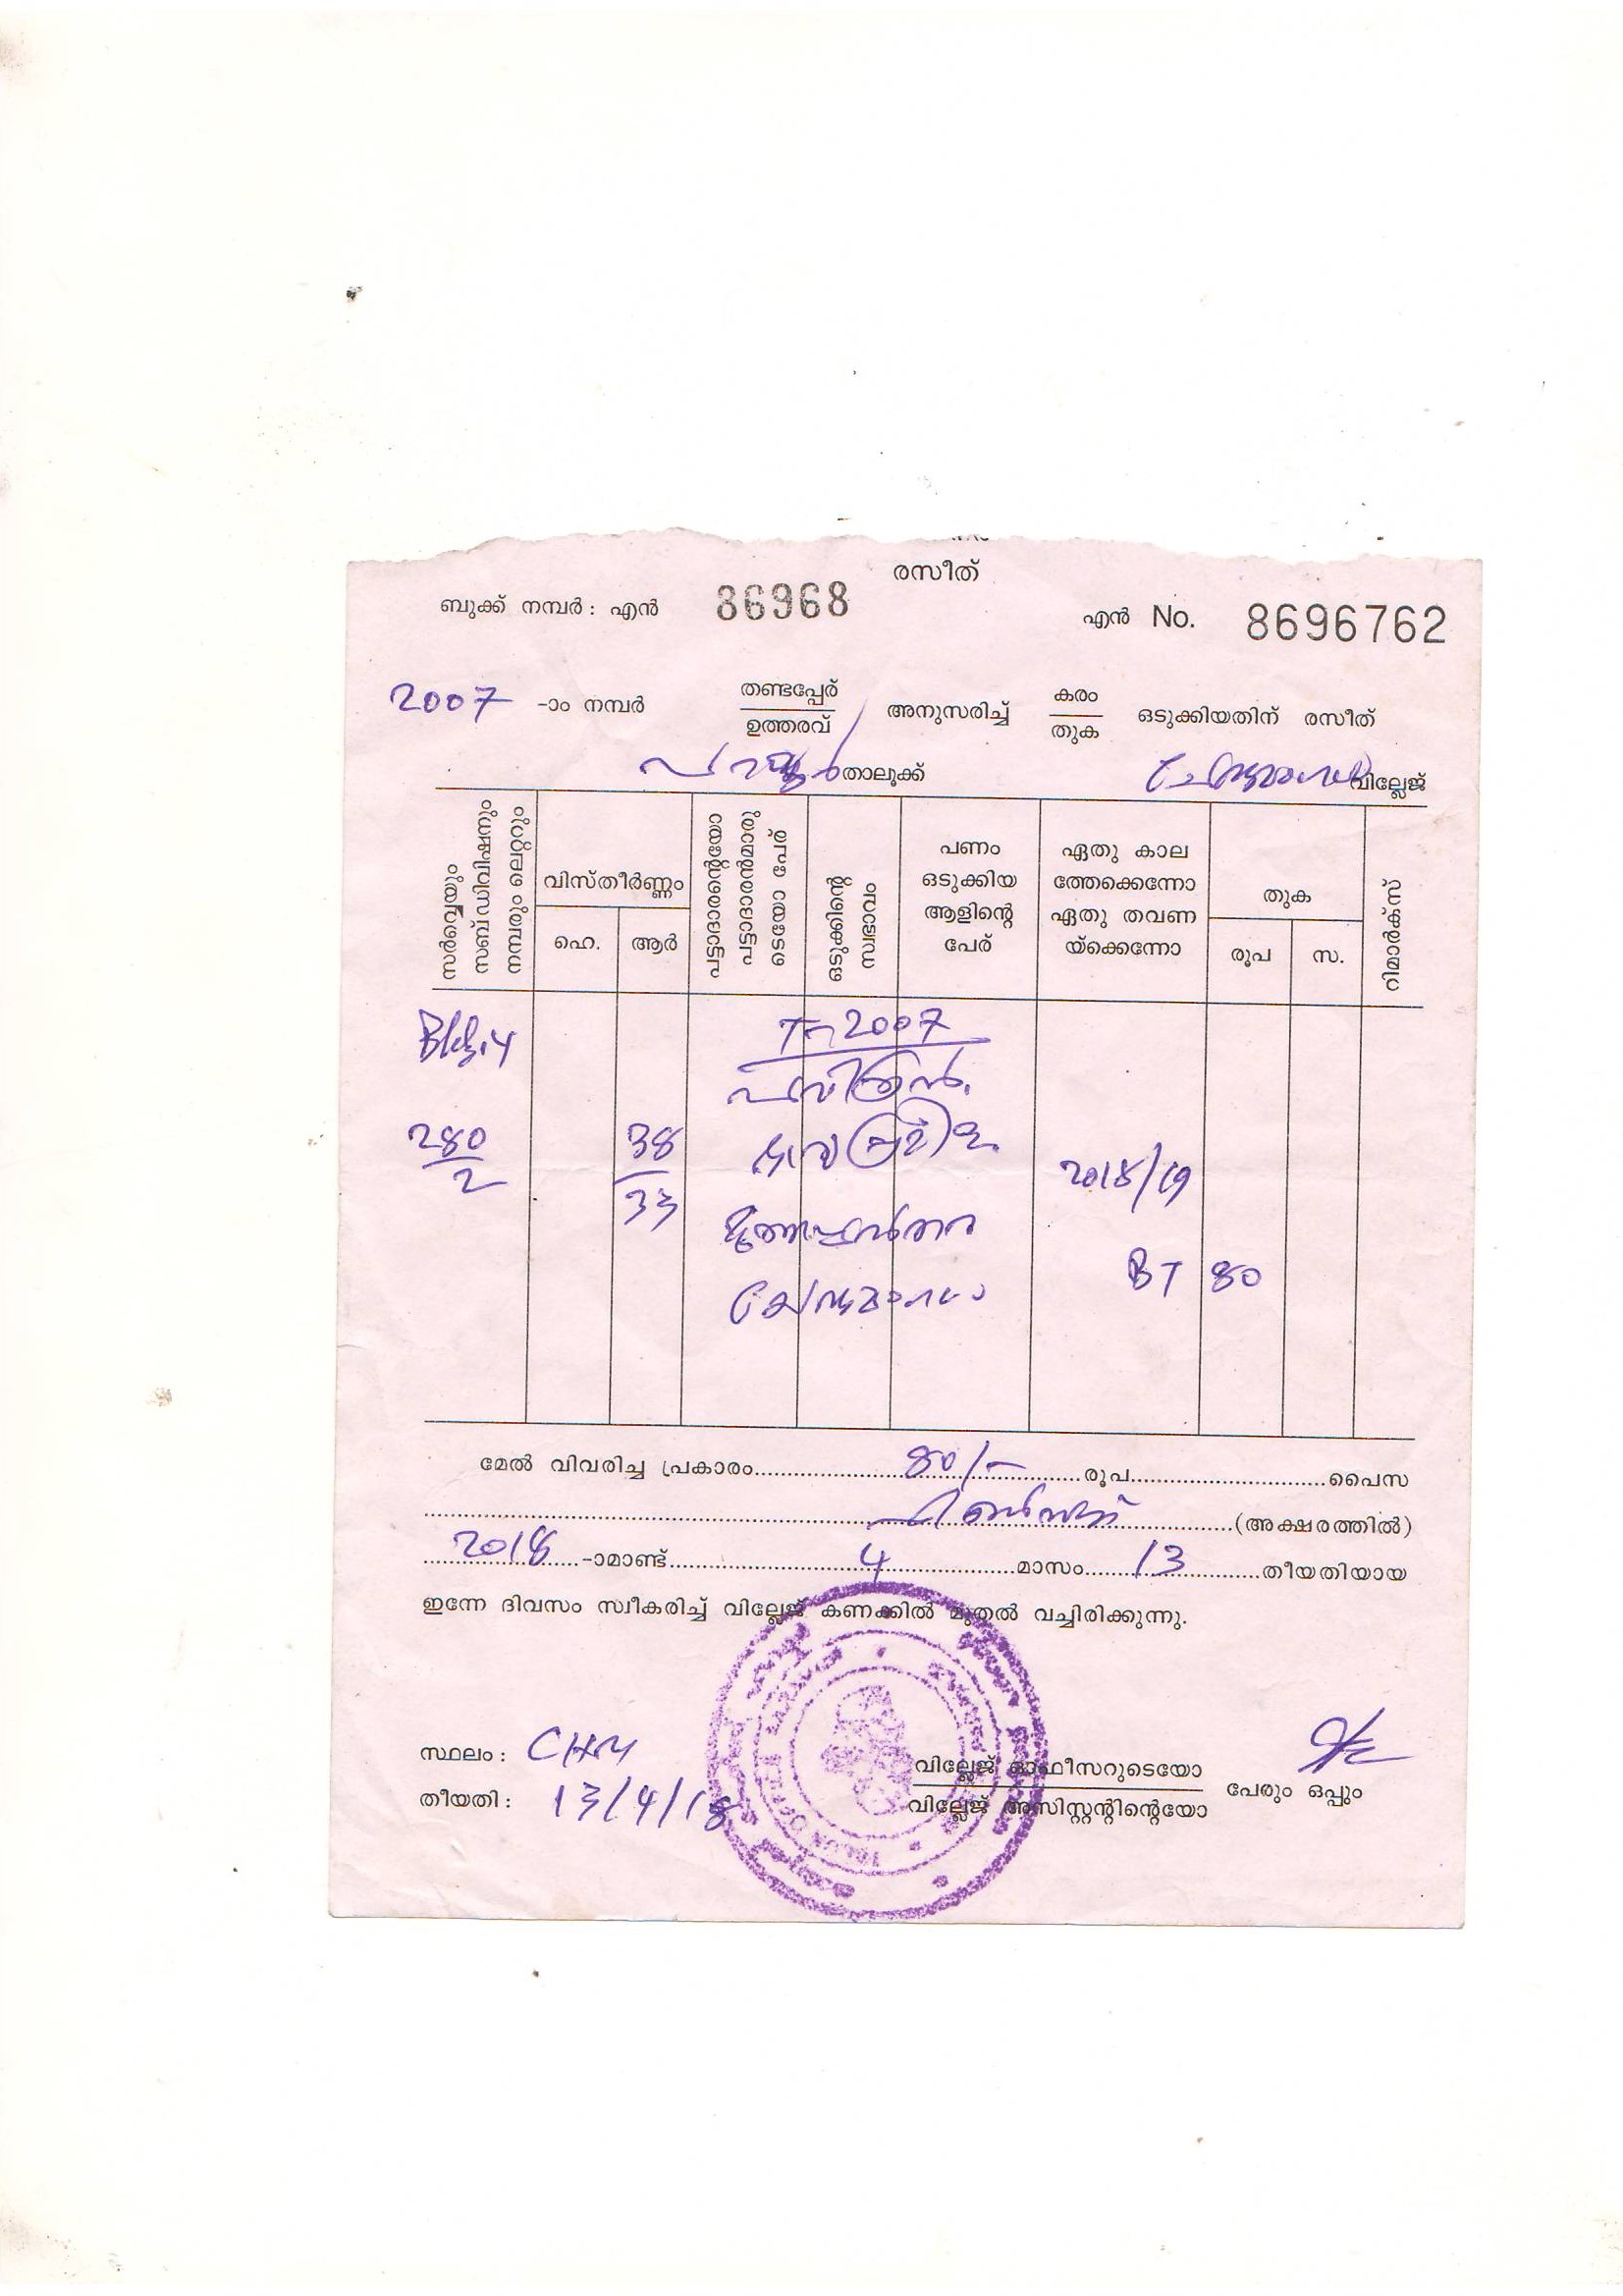 രസീത്
ബുക്ക് നമ്പർ : എൻ 86968 എൻ No. 8696762
2007 -ാം നമ്പർ തണ്ടപ്പേര് / ഉത്തരവ് അനുസരിച്ച് കരം / തുക ഒടുക്കിയതിന് രസീത്
പറവൂർ താലൂക്ക് ചേന്ദമംഗലം വില്ലേജ്
സർവ്വെയും സബ്ഡിവിഷനും നമ്പരും ലെറ്ററും
വിസ്തീർണ്ണം
ഹെ. ആർ
പട്ടാദാരന്റെയോ പട്ടാദാരന്മാരുടെയോ പേര്
ഒടുക്കിന്റെ സ്വഭാവം
പണം ഒടുക്കിയ ആളിന്റെ പേര്
ഏതു കാല
ത്തേക്കെന്നോ
ഏതു തവണ
യ്ക്കെന്നോ
തുക
രൂപ സ.
റിമാർക്സ്
T-2007
പവിത്രൻ.
280/2 38/33
2018/19
BT 80
മേൽ വിവരിച്ച പ്രകാരം 80/- രൂപ പൈസ
എൺപത് (അക്ഷരത്തിൽ)
2018 -ാമാണ്ട് 4 മാസം 13 തീയതിയായ
ഇന്നേ ദിവസം സ്വീകരിച്ച് വില്ലേജ് കണക്കിൽ മുതൽ വച്ചിരിക്കുന്നു.
സ്ഥലം : CHM
തീയതി : 13/4/18
വില്ലേജ് ഓഫീസറുടെയോ
വില്ലേജ് അസിസ്റ്റന്റിന്റെയോ
പേരും ഒപ്പും